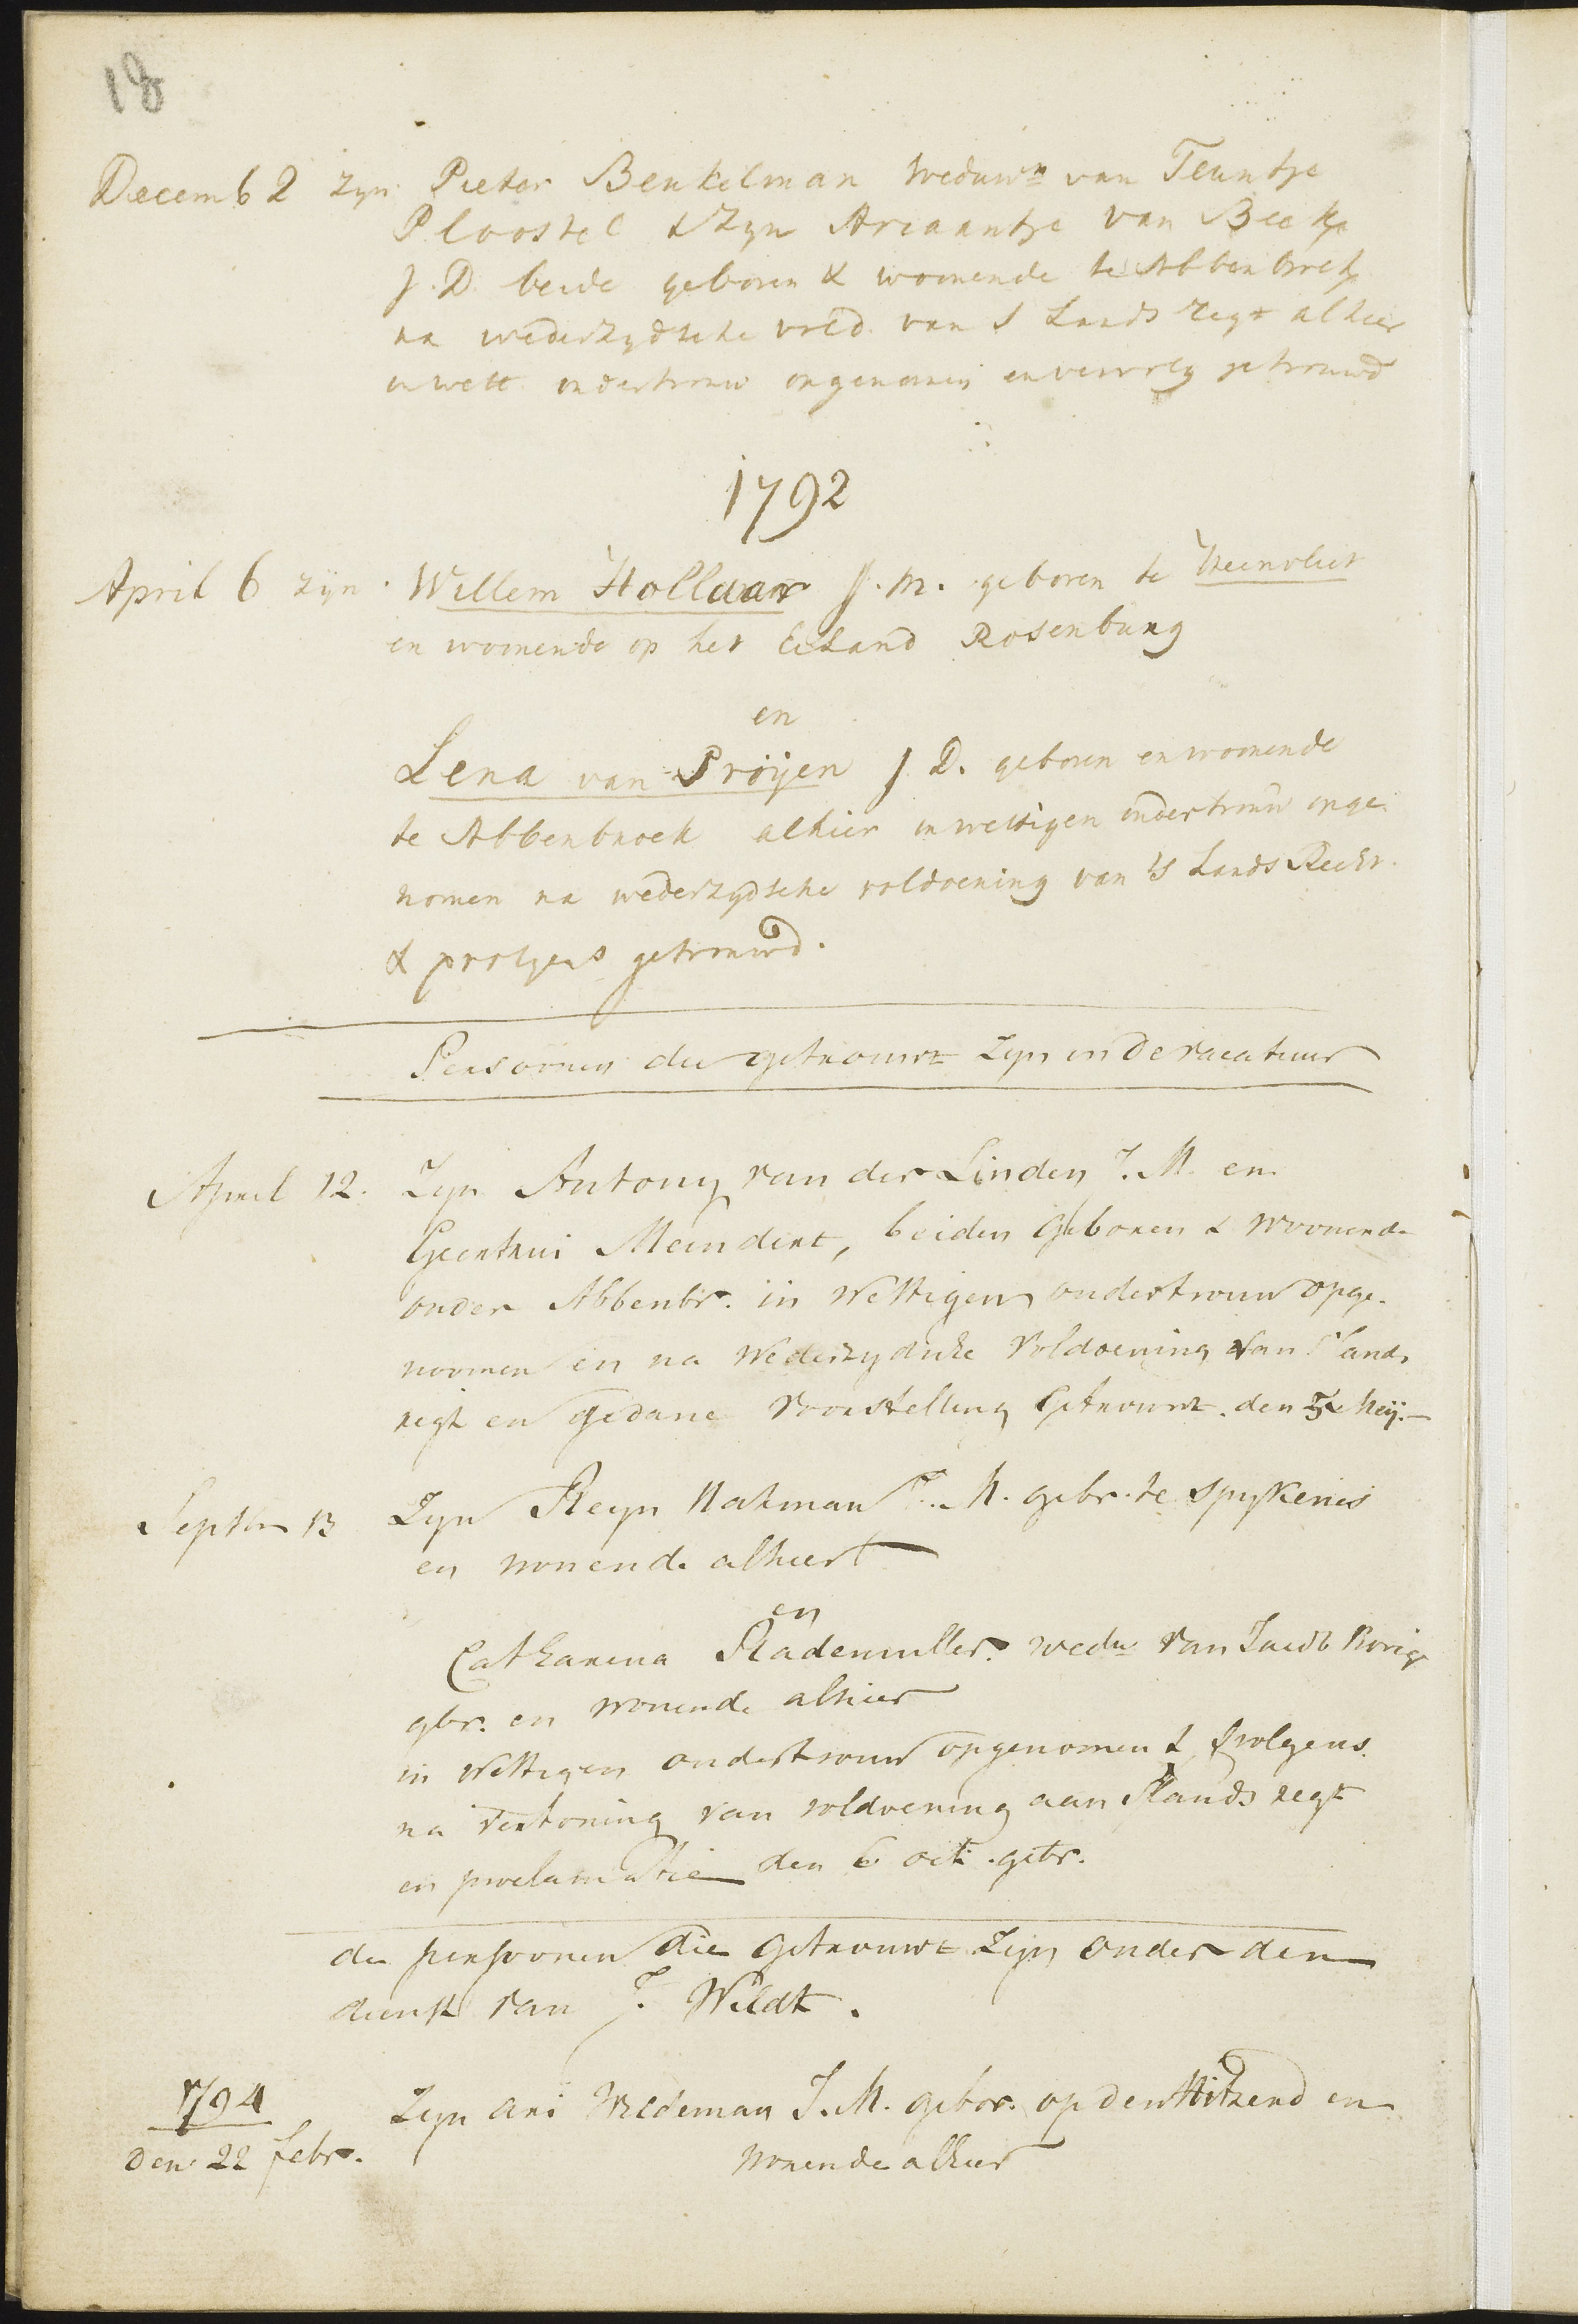 18
Decemb 2 zyn Pieter Benkelman Weduwn van Teuntje
Ploostel & Zyn Ariaantje van Beek
J. D. beide geboren & woonende te Abbenbroek
na wederzydsche vold. van s Lands regt alhier
in wett. ondertrouw opgenomen en vervolg getrouwd
1792
April 6 zijn Willem Hollaar J. m. geboren te Heenvliet
en woonende op het Eiland Rosenburg
en
Lena van Prōÿen J D. geboren en woonende
te Abbenbroek alhier in wettigen ondertrouw opge
nomen na wederzydsche voldoening van 's Lands Recht
& prolgens getrouwd.
Persoonen die getrouwt zyn in de vacatuur
April 12. Zyn Antony van der Linden J. M. en
Geertrui Meindert, beiden geboren & woonende
onder Abbenbr. in Wettigen ondertrouw opge-
noomen en na Wederzydsche Voldoening van s Lands
regt en gedane voorstelling getrouwt. den 5e Meij. —
Septbr 13 Zyn Reyn Hakman J. M. gebr. te Spykenis
en wonende alhier
en
Catharina Rademuller. wedw van Jacob
gbr. en wonende alhier
in Wettigen ondertrouw opgenomen & volgens
na vertoning van voldoening aan slands regt
en proclamatie den 6 oct. getr.
de persoonen die getrouwt zyn onder den
dienst van J. Wildt.
1794
den 22 febr. Zyn Ari Weldeman J. M. gebor. op den Hitzerd en
wonende alhier